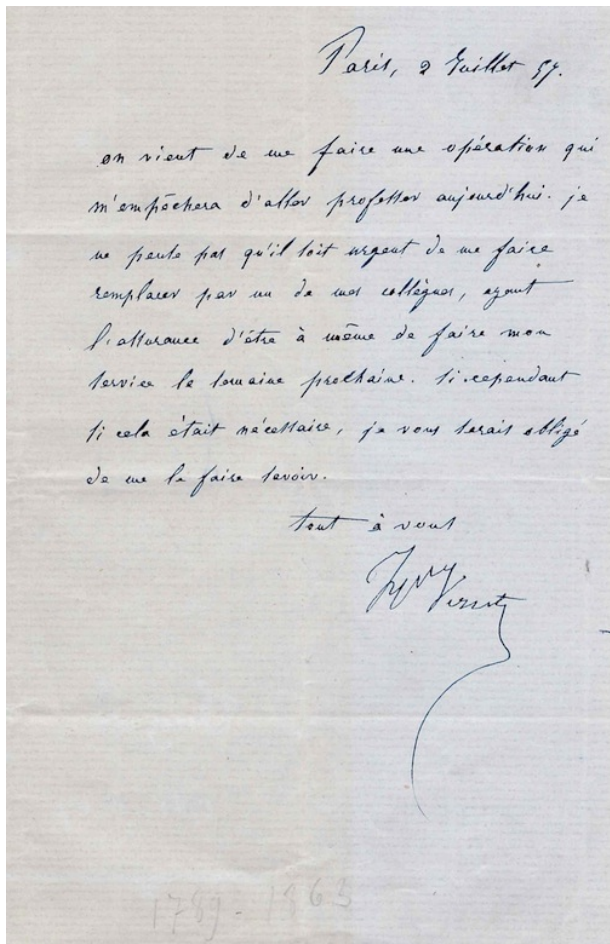 Paris, 2 Juillet 57.
on vient de me faire une opération qui
m'empêchera d'aller professer aujourd'hui. je
ne pense pas qu'il soit urgent de me faire
remplacer par un de mes collègues, ayant
l'assurance d'être à même de faire mon
service la semaine prochaine. si cependant
si cela était nécessaire, je vous serais obligé
de me le faire savoir.
tout à vous
H. Vernet
1789 - 1863